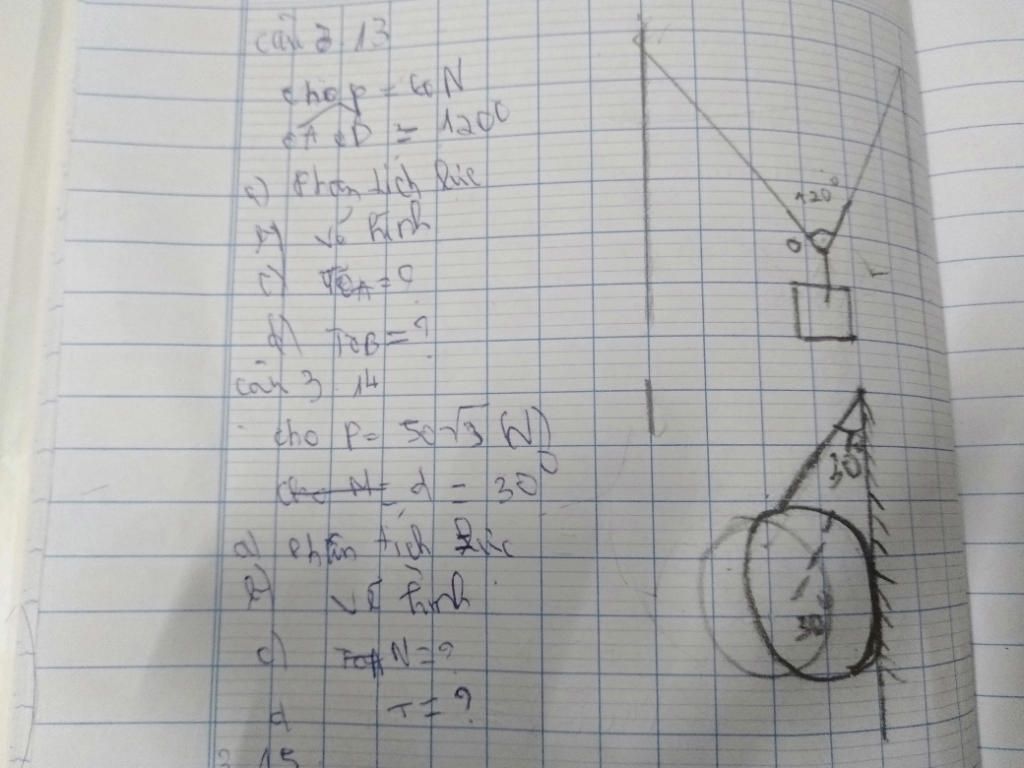 câu 3 13
cho p = 60 N
OA OB = 120°
a) Phân tích lực
b) vẽ hình
c) TOA = ?
d) TOB = ?
câu 3 14
cho P = 50√3 (N)
α = 30°
a) Phân tích lực
b) vẽ hình
c) N = ?
d T = ?
3 15
120°
O
30°
30°